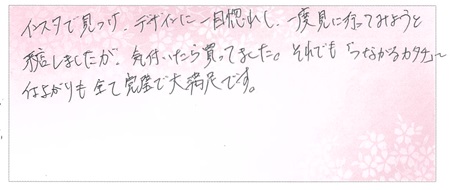 インスタで見つけ、デザインに一目惚れし、一度見に行ってみようと
来店しましたが、気付いたら買ってました。それでも「つながるカタチ」〜
仕上がりも全て完璧で大満足です。